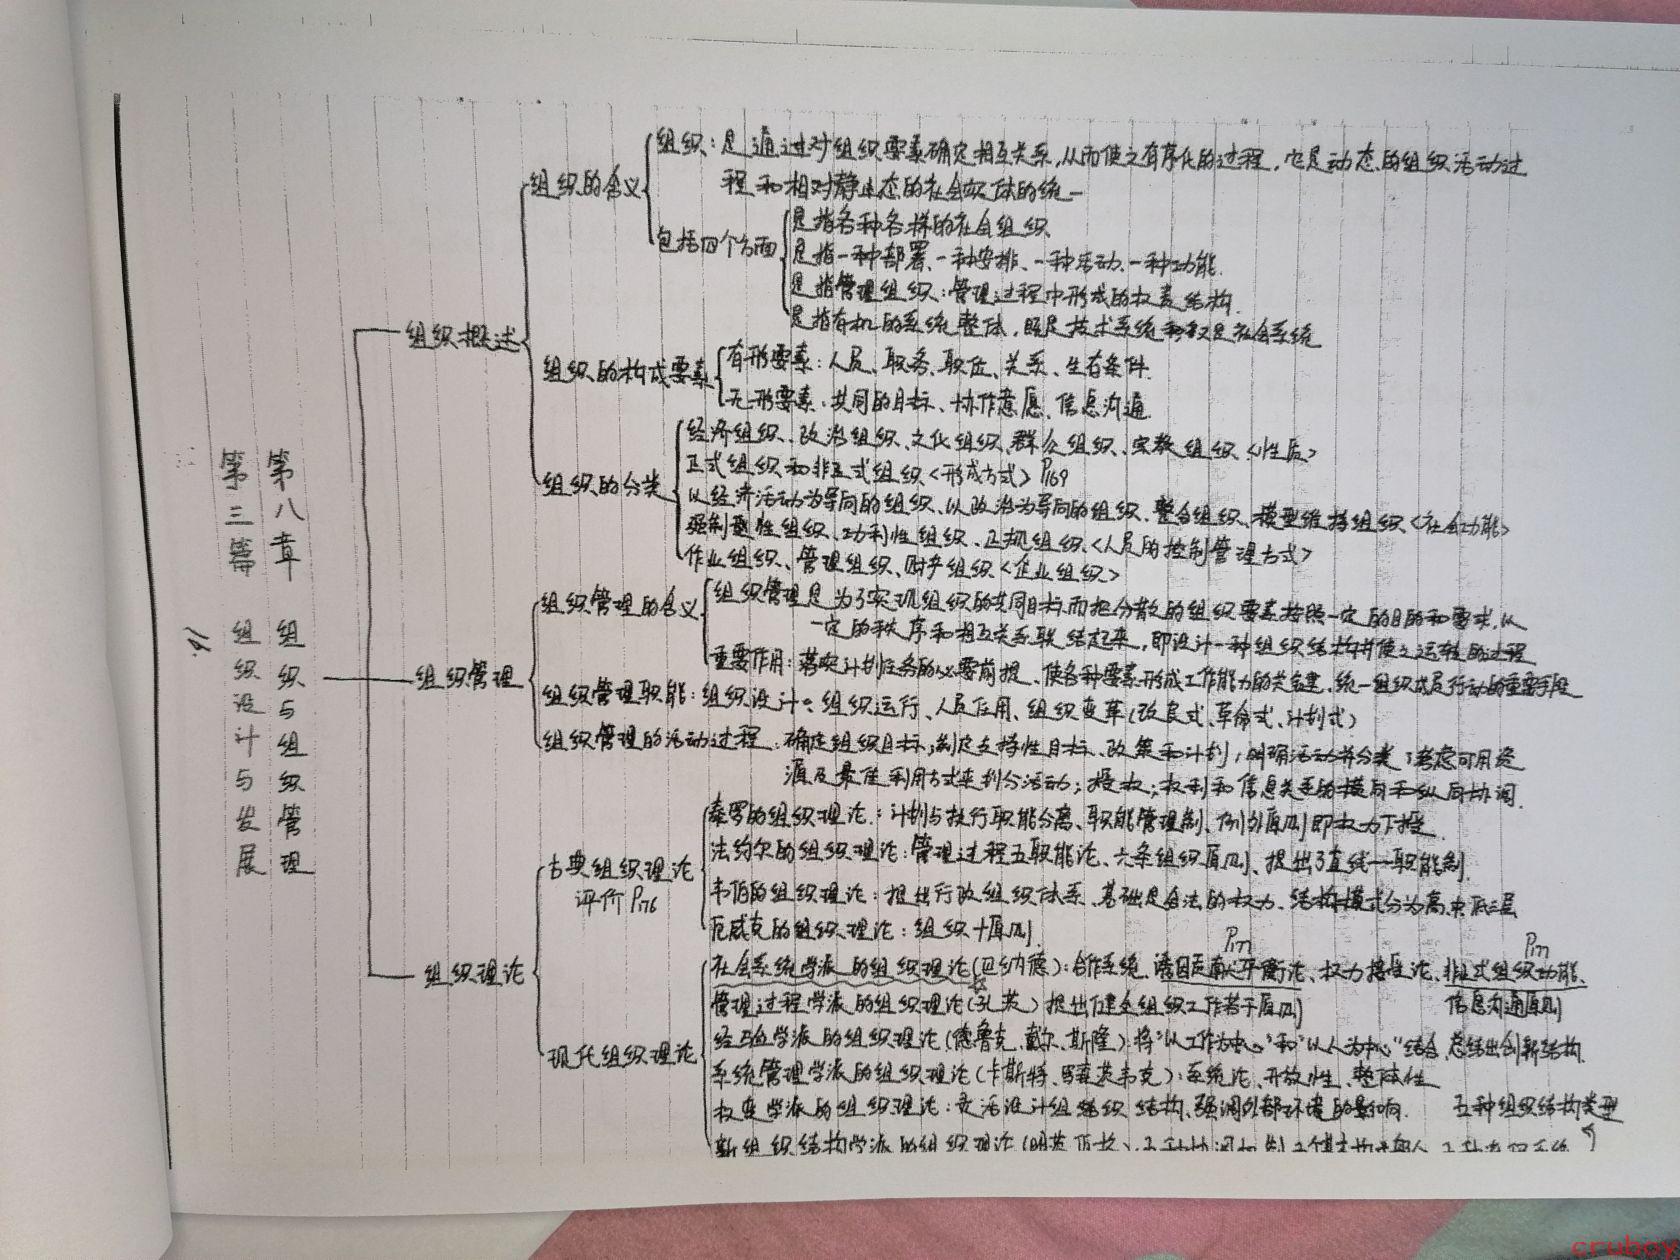 第三篇 组织设计与发展
第八章 组织与组织管理
组织概述
组织的含义
组织：是通过对组织要素确定相互关系，从而使之有序化的过程，它是动态的组织活动过
程和相对静止态的社会实体的统一
包括四个方面
是指各种各样的社会组织
是指一种部署、一种安排、一种活动、一种功能.
是指管理组织：管理过程中形成的权责结构.
是指有机的系统整体，既是技术系统又是社会系统
组织的构成要素
有形要素：人员、职务、职位、关系、生存条件.
无形要素：共同的目标、协作意愿、信息沟通
组织的分类
经济组织、政治组织、文化组织、群众组织、宗教组织<性质>
正式组织和非正式组织<形成方式> P169
以经济活动为导向的组织、以政治为导向的组织、整合组织、模型维持组织<社会功能>
强制性组织、功利性组织、正规组织<人员的控制管理方式>
作业组织、管理组织、财产组织<企业组织>
组织管理
组织管理的含义
组织管理是为了实现组织的共同目标而把分散的组织要素按照一定的目的和要求，以
一定的秩序和相互关系联结起来，即设计一种组织结构并使之运转的过程
重要作用：落实计划任务的必要前提、使各种要素形成工作能力的关键、统一组织成员行动的重要手段
组织管理职能：组织设计、组织运行、人员任用、组织变革(改良式、革命式、计划式)
组织管理的活动过程：确定组织目标；制定支持性目标、政策和计划；明确活动并分类；考虑可用资
源及最佳利用方式来划分活动；授权；权利和信息关系的横向和纵向协调.
组织理论
古典组织理论
评价 P176
泰罗的组织理论：计划与执行职能分离、职能管理制、例外原则即权力下授.
法约尔的组织理论：管理过程五职能论、六条组织原则、提出了直线一职能制.
韦伯的组织理论：提出行政组织体系、基础是合法的权力、结构模式分为高中低三层
厄威克的组织理论：组织十原则.
现代组织理论
P177 P177
社会系统学派的组织理论(巴纳德)：合作系统、诱因贡献平衡论、权力接受论、非正式组织功能、
信息沟通原则
管理过程学派的组织理论(孔茨)提出健全组织工作若干原则
经验学派的组织理论(德鲁克、戴尔、斯隆)：将"以工作为中心"和"以人为中心"结合，总结出创新结构.
系统管理学派的组织理论(卡斯特、罗森茨韦克)：系统论、开放性、整体性
权变学派的组织理论：灵活设计组织结构、强调外部环境的影响. 五种组织结构类型
新组织结构学派的组织理论(明茨伯格)
cruboy